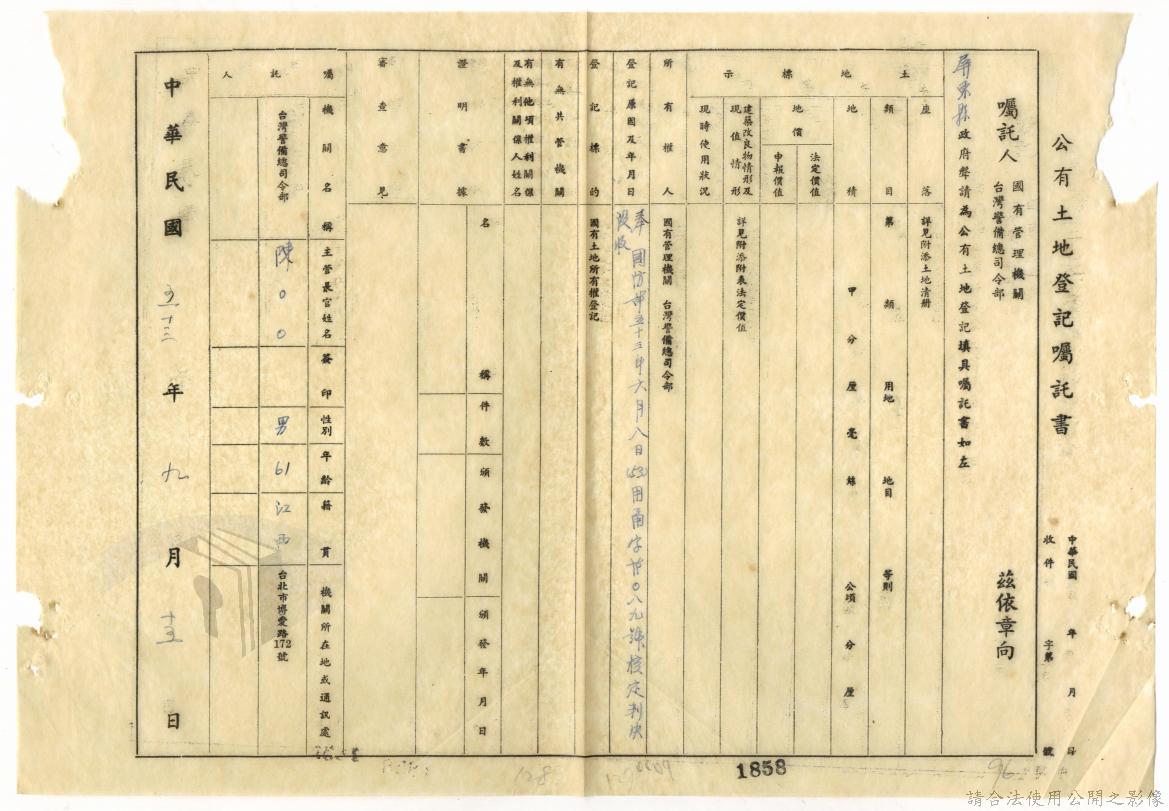 公有土地登記囑託書
中華民國 年 月 日
收件 字第 號
囑託人 國有管理機關
台灣警備總司令部
茲依章向
屏東縣政府聲請為公有土地登記填具囑託書如左
土地標示
座落 詳見附添土地清册
類目 第 類 用地 地目 等則
地積 甲 分 厘 毫 絲 公頃 分 厘
地價
法定價值
申報價值
建築改良物情形及現值情形 詳見附添附表法定價值
現時使用狀況
所有權人 國有管理機關 台灣警備總司令部
登記原因及年月日 奉國防部五十三年六月八日(53)用甯字第〇八九號核定判決
没收
登記標的 國有土地所有權登記
有無共管機關
有無他項權利關係及權利關係人姓名
證明書據
名稱
件數
頒發機關
頒發年月日
審查意見
囑託人
機關名稱 主管長官姓名 簽印 性別 年齡 籍貫 機關所在地或通訊處
台灣警備總司令部 陳00 男 61 江西 台北市博愛路172號
中華民國五十三年九月十五日
1858
96
128
請合法使用公開之影像